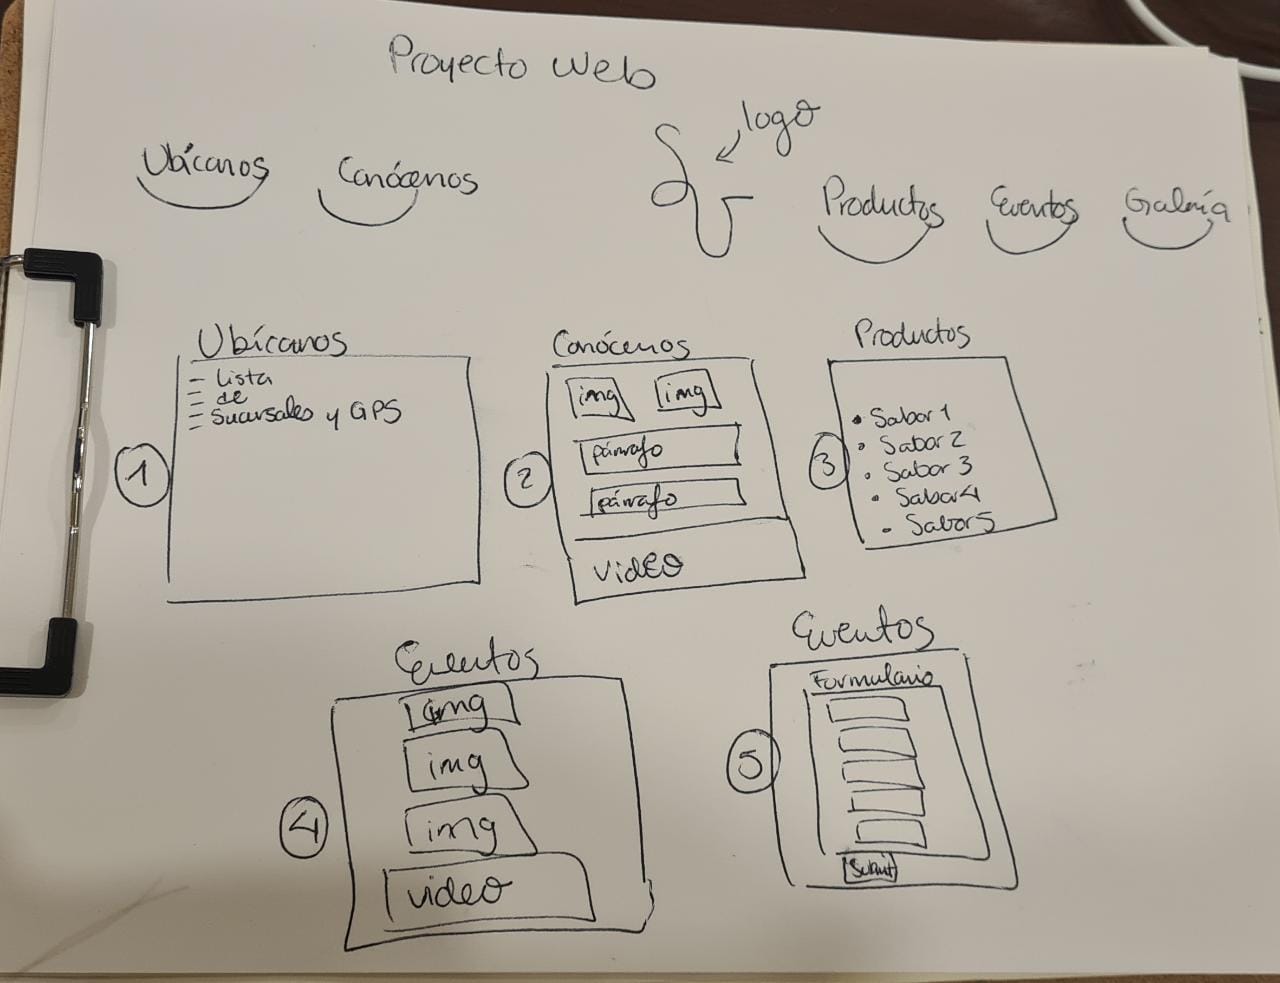 Proyecto Web
logo
Ubícanos
Conócenos
Productos
Eventos
Galería
Ubícanos
- Lista
- de
- Sucursales y GPS
1
Conócenos
img
img
párrafo
párrafo
video
2
Productos
• Sabor 1
• Sabor 2
• Sabor 3
• Sabor 4
• Sabor 5
3
Eventos
img
img
img
video
4
Eventos
Formulario
Submit
5